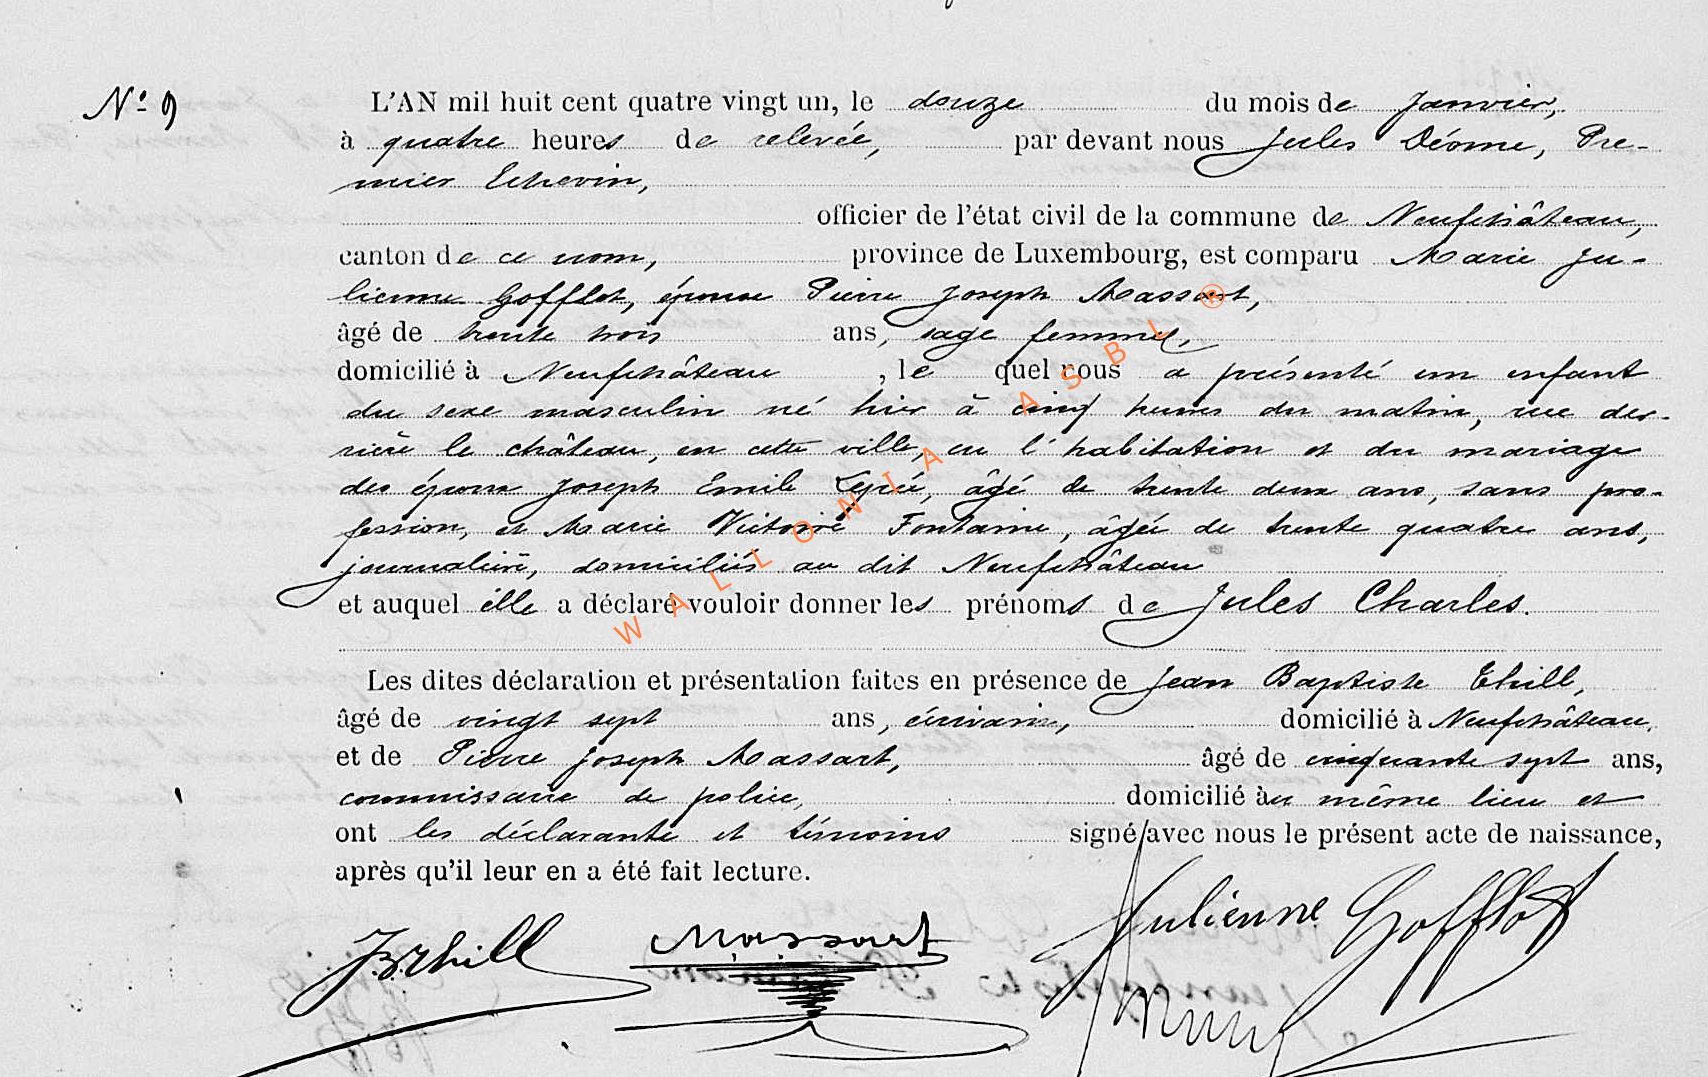 Nº 9
L'AN mil huit cent quatre vingt un, le douze du mois de Janvier,
à quatre heures de relevée, par devant nous Jules Déome, Pre-
mier Echevin,
officier de l'état civil de la commune de Neufchâteau,
canton de ce nom, province de Luxembourg, est comparu Marie Ju-
lienne Gofflot, épouse Pierre Joseph Massart,
âgé de trente trois ans, sage femme,
domicilié à Neufchâteau, le quel nous a présenté un enfant
du sexe masculin né hier à cinq heures du matin, rue der-
rière le château, en cette ville, en l'habitation et du mariage
des époux Joseph Emile Lepié, âgé de trente deux ans, sans pro-
fession, et Marie Victoire Fontaine, âgée de trente quatre ans,
journalière, domiciliés au dit Neufchâteau
et auquel elle a déclaré vouloir donner les prénoms de Jules Charles.
Les dites déclaration et présentation faites en présence de Jean Baptiste Thill,
âgé de vingt sept ans, écrivain, domicilié à Neufchâteau,
et de Pierre Joseph Massart, âgé de cinquante sept ans,
commissaire de police, domicilié au même lieu et
ont les déclarante et témoins signé avec nous le présent acte de naissance,
après qu'il leur en a été fait lecture.
JBThill Massart Julienne Gofflot
WALLONIA ASBL ®